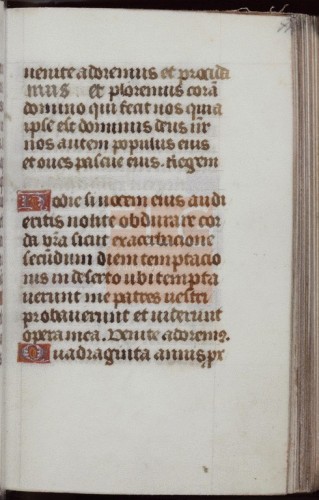 uenite adoremus et procida
mus et ploremus corā
domino qui fecit nos quia
ipse est dominus deus nr̄
nos autem populus eius
et oues pascue eius. Regem
Hodie si uocem eius audi
eritis nolite obdurare cor
da vr̄a sicut exacerbacione
secūdum diem temptacio
nis in deserto ubi tempta
uerunt me patres uestri
probauerunt et uiderunt
opera mea. Venite adorem9.
Quadraginta annis pr